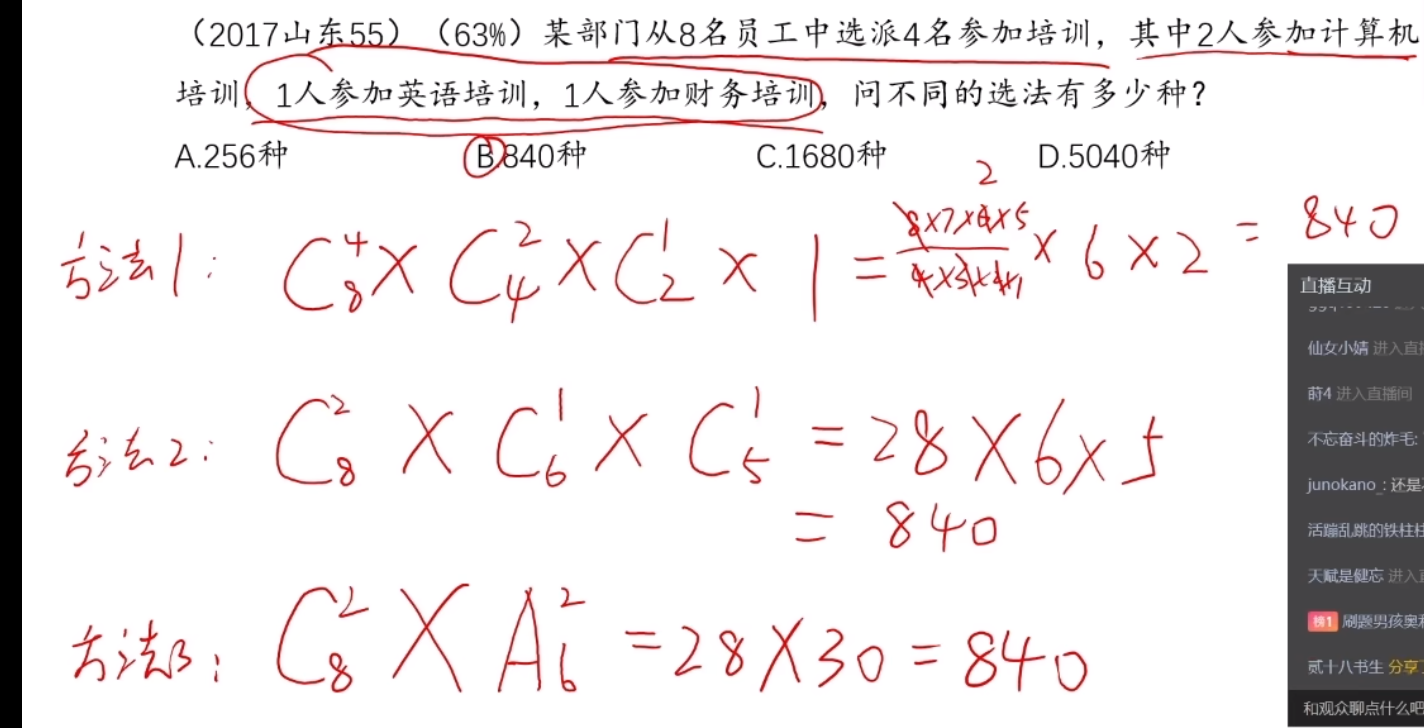 （2017山东55）（63%）某部门从8名员工中选派4名参加培训，其中2人参加计算机
培训，1人参加英语培训，1人参加财务培训，问不同的选法有多少种？
A.256种 B.840种 C.1680种 D.5040种
方法1: C₈⁴ × C₄² × C₂¹ × 1 = (8×7×6×5)/(4×3×2×1) × 6 × 2 = 840
2
方法2: C₈² × C₆¹ × C₅¹ = 28 × 6 × 5
= 840
方法3: C₈² × A₆² = 28 × 30 = 840
直播互动
仙女小婧 进入直
莳4 进入直播间
不忘奋斗的炸毛:
junokano_: 还是
活蹦乱跳的铁柱
天赋是健忘 进入
榜1 刷题男孩奥
贰十八书生 分享
和观众聊点什么吧